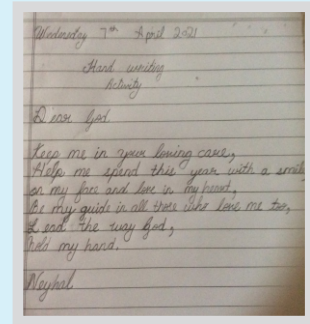 Wednesday 7th April 2021
Hand writing
Activity
Dear God
Keep me in your loving care,
Help me spend this year with a smile
on my face and love in my heart,
Be my guide in all those who love me too,
Lead the way God,
hold my hand.
Neyhal